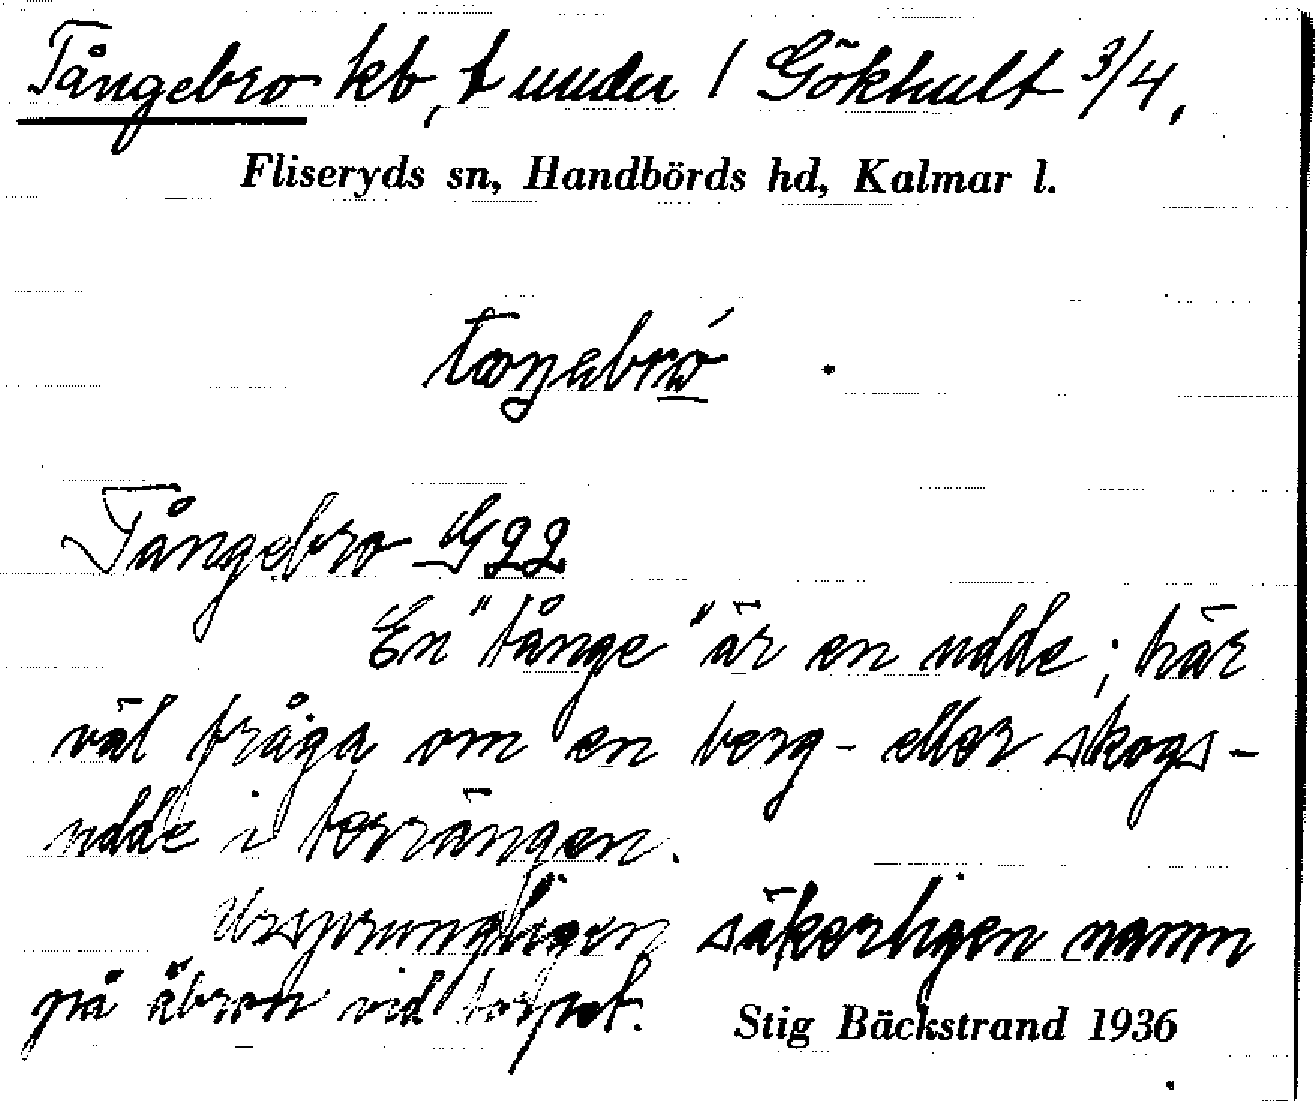 Tångebro kb, t under / Gökhult 3/4,
Fliseryds sn, Handbörds hd, Kalmar l.
Tångebro G22
En "tånge" är en udde; här
väl fråga om en berg- eller skogs-
udde i terrängen.
Ursprungligen säkerligen namn
på åbron vid torpet.
Stig Bäckstrand 1936